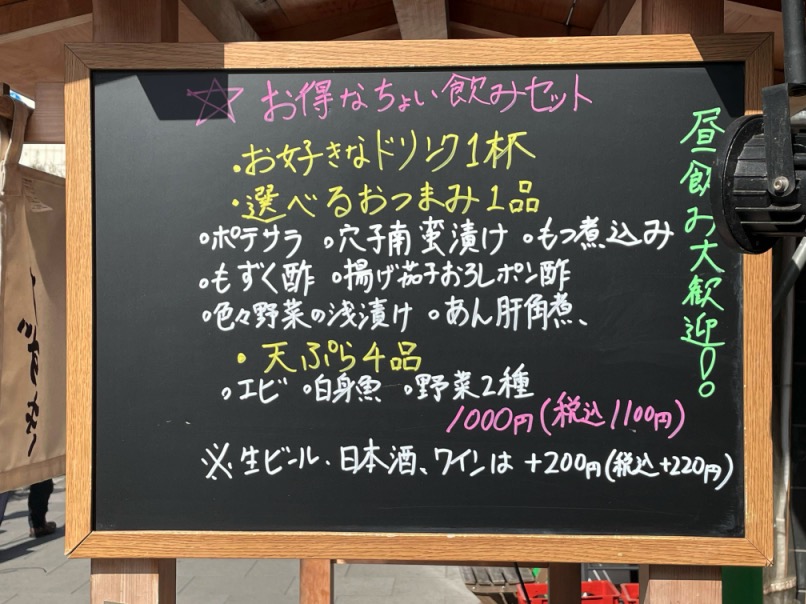 ☆ お得なちょい飲みセット
・お好きなドリンク1杯
・選べるおつまみ1品
○ポテサラ ○穴子南蛮漬け ○もつ煮込み
○もずく酢 ○揚げ茄子おろしポン酢
○色々野菜の浅漬け ○あん肝角煮、
・天ぷら4品
○エビ ○白身魚 ○野菜2種
1000円(税込1100円)
※生ビール、日本酒、ワインは +200円(税込+220円)
昼飲み大歓迎!!